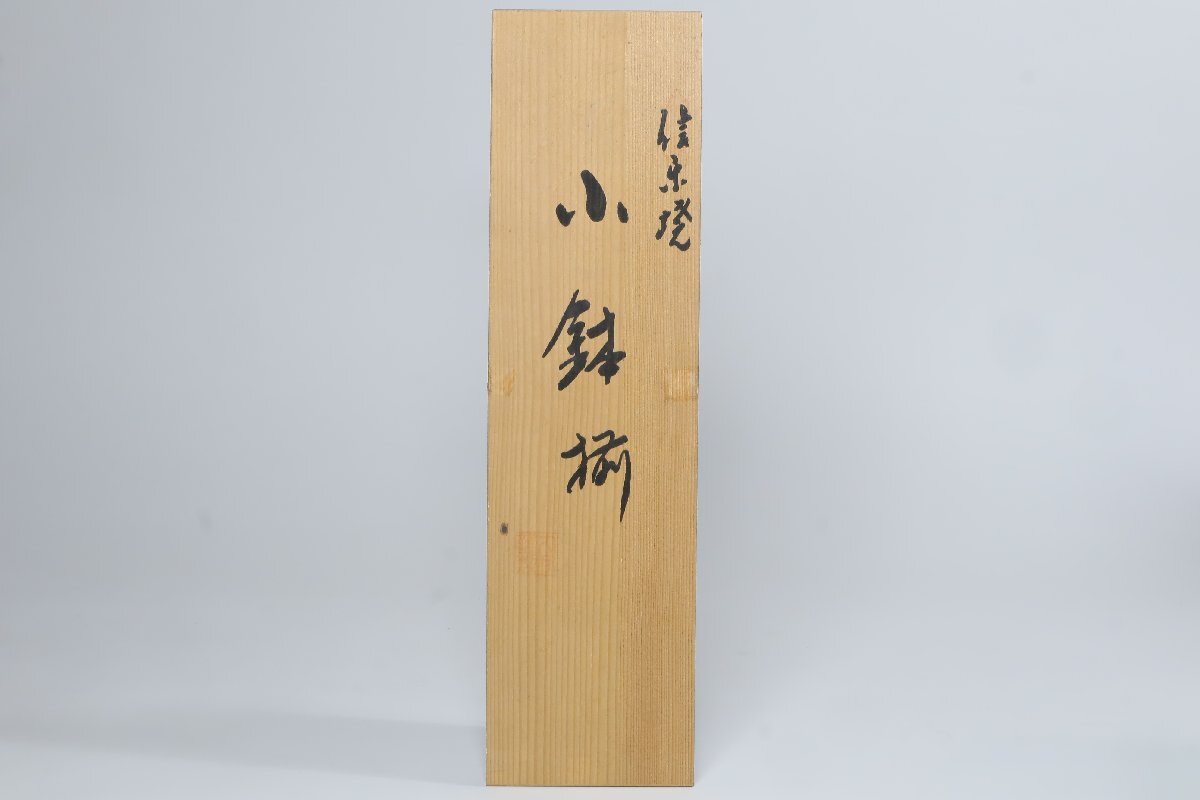 信楽焼
小鉢揃